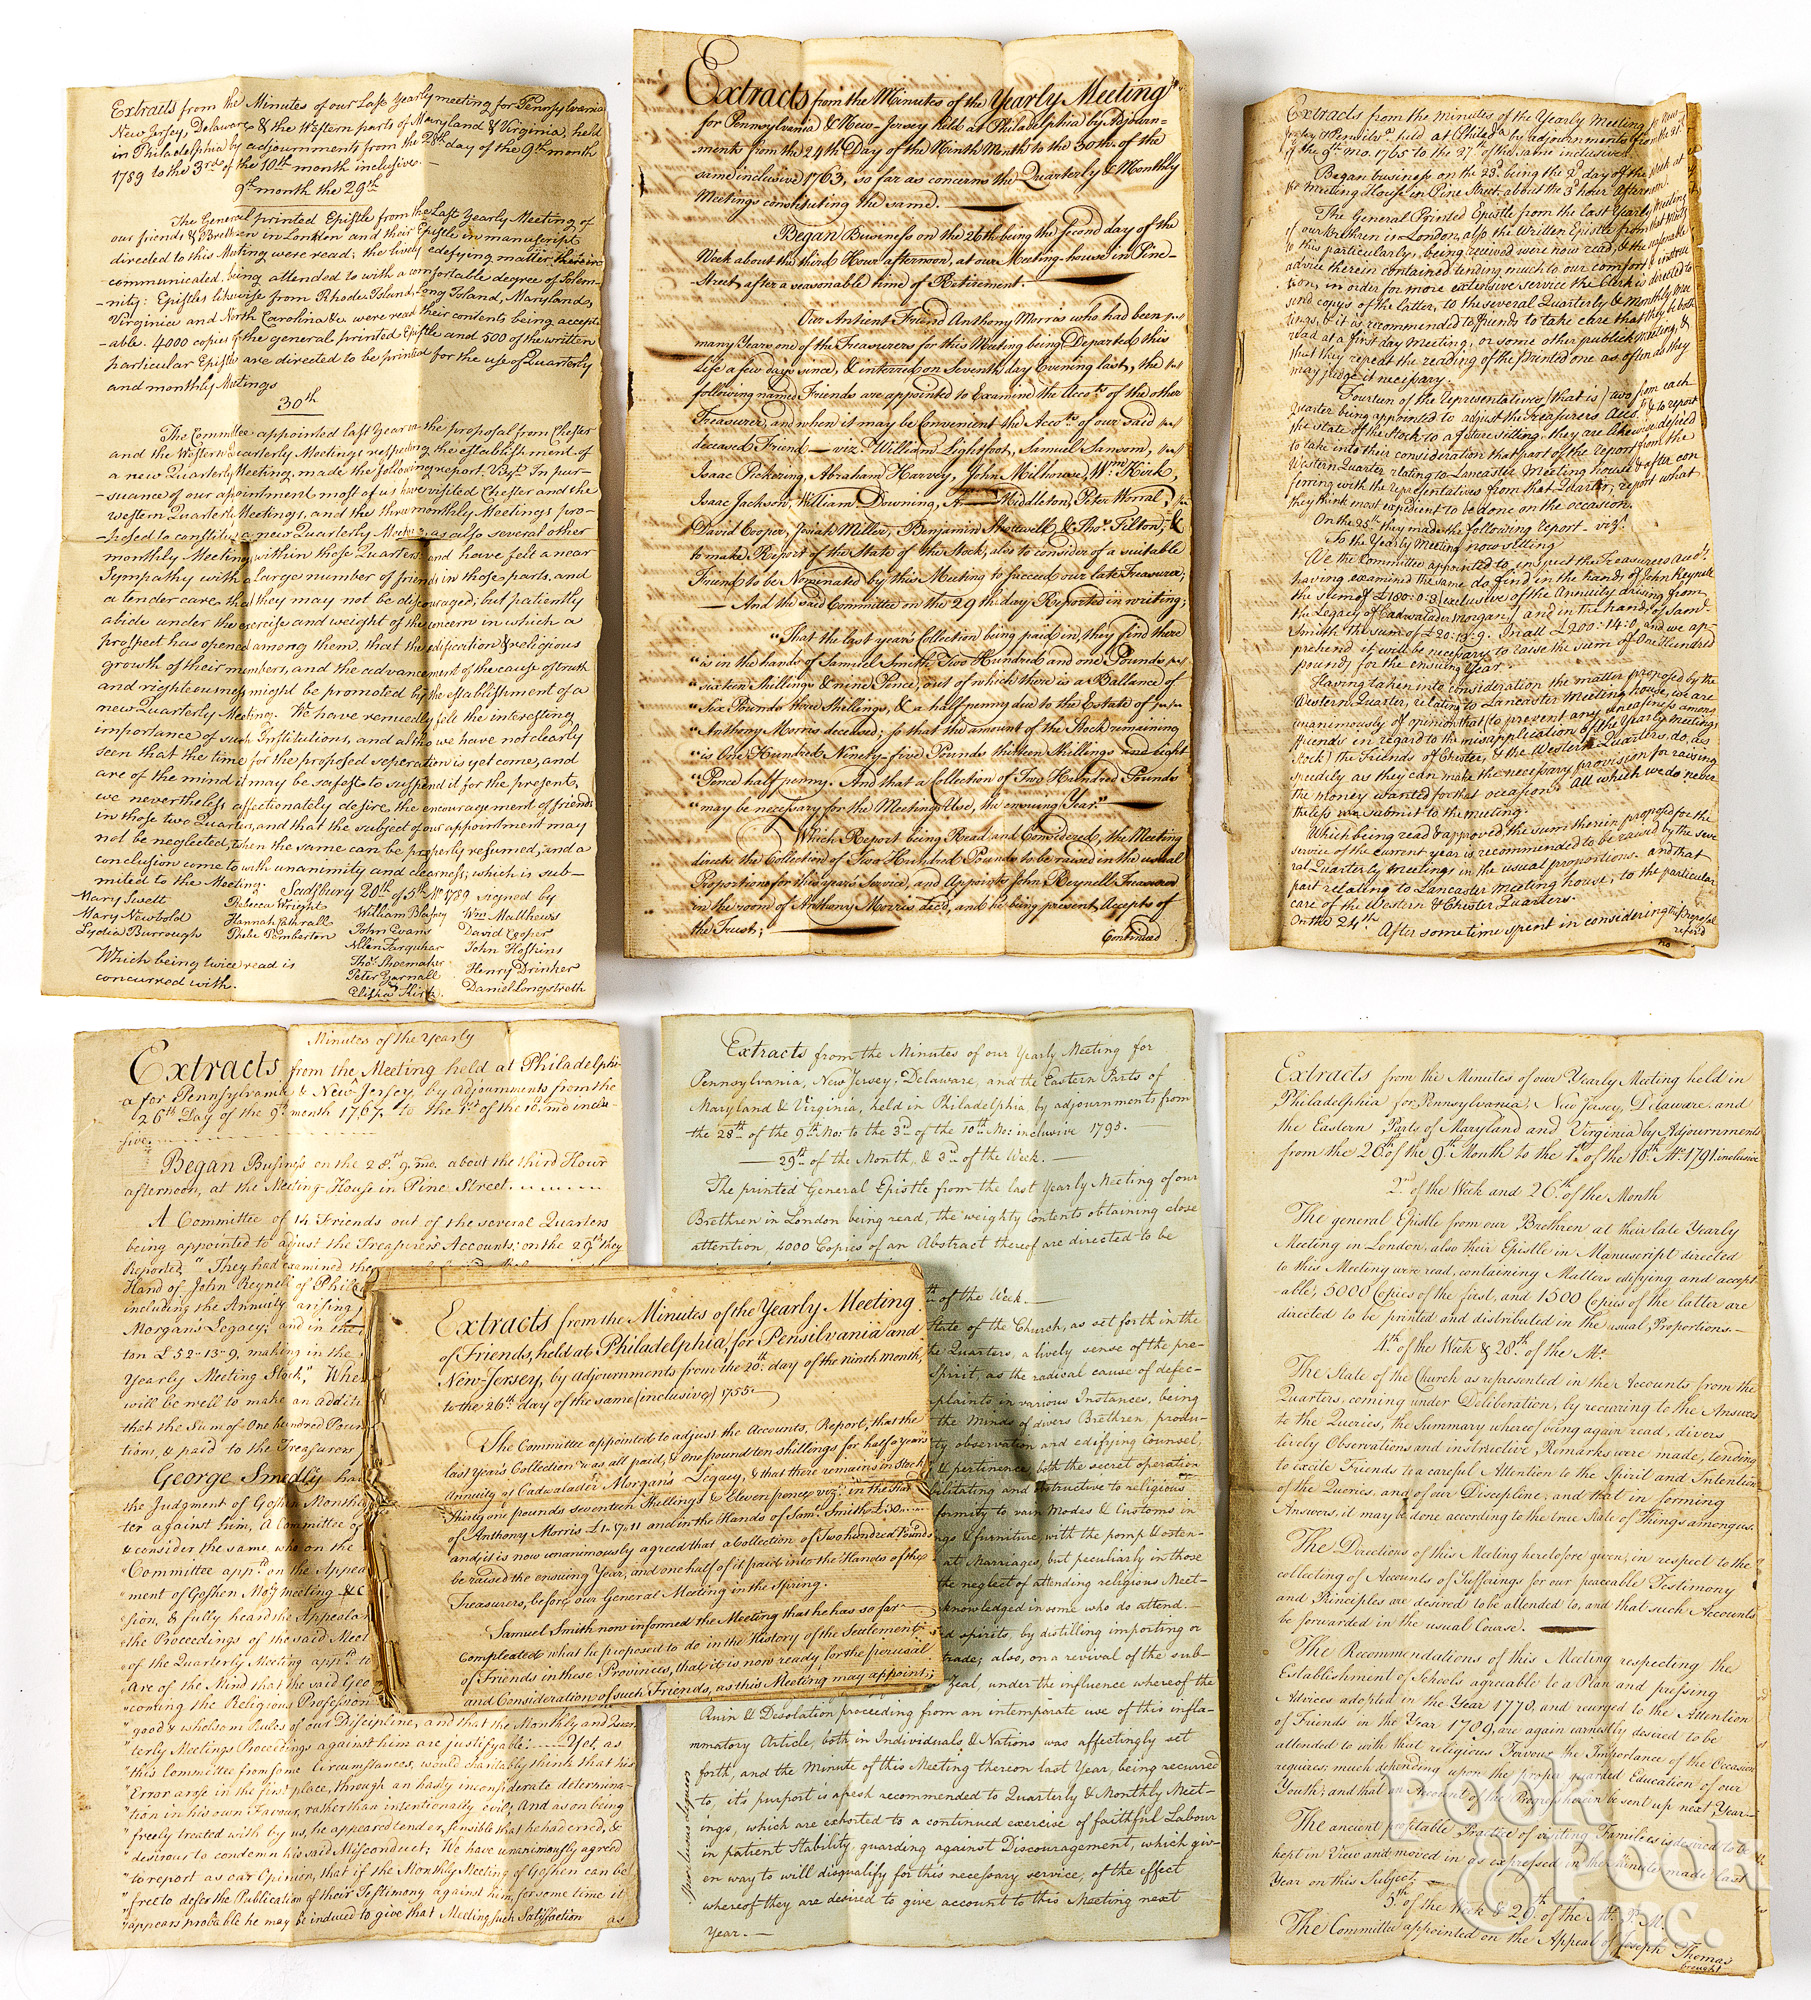 Extracts from the Minutes of our Last Yearly meeting for Pennsylvania
New Jersey, Delaware & the Western parts of Maryland & Virginia, held
in Philadelphia by adjournments from the 28th day of the 9th month
1789 to the 3rd of the 10th month inclusive.
9th month the 29th
The General printed Epistle from the Last Yearly Meeting of
our friends & Brethren in London and their Epistle in manuscript
directed to this Meeting were read; the lively edefying matter therein
communicated being attended to with a comfortable degree of Solem-
-nity: Epistles likewise from Rhode Island, Long Island, Maryland,
Virginia and North Carolina &c were read their contents being accept-
-able. 4000 copies of the general printed Epistle and 500 of the written
particular Epistle are directed to be printed for the use of Quarterly
and monthly Meetings
30th
The Committee appointed last Year on the proposal from Chester
and the Western Quarterly Meetings respecting the establishment of
a new Quarterly Meeting, made the following report. Vizt. In pur-
-suance of our appointment most of us have visited Chester and the
western Quarterly Meetings, and the three monthly Meetings pro-
-posed to constitute a new Quarterly Meeting, as also several other
monthly Meetings within those Quarters and have felt a near
Sympathy with a large number of friends in those parts, and
a tender care that they may not be discouraged; but patiently
abide under the exercise and weight of the concern in which a
prospect has opened among them, that the edification & religious
growth of their members, and the advancement of the cause of truth
and righteousness might be promoted by the establishment of a
new Quarterly Meeting. We have renuedly felt the interesting
importance of such Institutions, and altho we have not clearly
seen that the time for the proposed seperation is yet come, and
are of the mind it may be safest to suspend it for the present,
we nevertheless affectionately desire the encouragement of friends
in those two Quarters, and that the subject of our appointment may
not be neglected, when the same can be properly resumed, and a
conclusion come to with unanimity and clearness; which is sub-
-mited to the Meeting. Sadsbury 20th of 5th Mo 1789 signed by
Mary Swett Rebecca Wright William Blakey Wm Matthews
Mary Newbold Hannah Cathrall John Evans David Cooper
Lydia Burrough Phebe Pemberton Allen Farquhar John Hoskins
Thos Shoemaker Henry Drinker
Peter Yarnall Daniel Longstreth
Elisha Kirk.
Which being twice read is
concurred with.
Extracts from the Minutes of the Yearly Meeting
for Pennsylvania & New-Jersey held at Philadelphia by Adjourn-
ments from the 24th Day of the Ninth Month to the 30th of the
same inclusive 1763, so far as concerns the Quarterly & Monthly
Meetings constituting the same.
Began Business on the 26th being the second day of the
Week about the third Hour afternoon, at our Meeting-house in Pine-
Street, after a seasonable time of Retirement.
Our Antient Friend Anthony Morris who had been
many Years one of the Treasurers for this Meeting being Departed this
Life a few days since, & interred on Seventh day Evening last, the
following named Friends are appointed to Examine the Accots of the other
Treasurer, and when it may be Convenient the Accots of our said
deceased Friend — vizt William Lightfoot, Samuel Sansom,
Isaac Pickering, Abraham Harvey, John Milhouse, Wm Kirk,
Isaac Jackson, William Downing, Middleton, Peter Worral,
David Cooper, Josiah Miller, Benjamin Shotwell & Thos Tilton, &
to make Report of the State of the Stock, also to consider of a suitable
Friend to be Nominated by this Meeting to succeed our late Treasurer;
— And the said Committee on the 29th day Reported in writing;
"That the last years Collection being paid in, they find there
"is in the hands of Samuel Smith Two Hundred and one Pounds
"sixteen Shillings & nine Pence, out of which there is a Ballance of
"Six Pounds three Shillings, & a half penny due to the Estate of
"Anthony Morris deceased; so that the amount of the Stock remaining
"is One Hundred Ninety-five Pounds thirteen Shillings and eight
"Pence half penny. And that a Collection of Two Hundred Pounds
"may be necessary for the Meetings Use, the ensuing Year."
Which Report being Read and Considered, the Meeting
directs the Collection of Two Hundred Pounds to be raised in the usual
Proportions for this year's Service, and Appoints John Reynell Treasurer
in the room of Anthony Morris Decd, and he being present, Accepts of
the Trust;
Continued
Extracts from the minutes of the Yearly Meeting
held at Philada by adjournments from the 21st
of the 9th mo. 1765 to the 27th of the same inclusive.
Began business on the 23d being the 2d day of the Week at
the Meeting House in Pine Street about the 3d hour afternoon.
The General Printed Epistle from the last Yearly Meeting
of our Brethren in London, also the Written Epistle from that Meeting
to this particularly, being received were now read, & the seasonable
advice therein contained tending much to our comfort & instruc
tion, in order for more extensive service the Clerk is directed to
send copys of the latter, to the several Quarterly & Monthly Mee
tings, & it is recommended to friends to take care that they be both
read at a first day Meeting, or some other publick meeting, &
that they repeat the reading of the Printed one as often as they
may judge it necessary.
Fourteen of the Representatives (that is) two from each
Quarter being appointed to adjust the Treasurers Accts & to report
the state of the Stock to a future sitting, they are likewise desired
to take into their consideration that part of the Report from the
Western Quarter relating to Lancaster Meeting house & after con
ferring with the representatives from that Quarter, report what
they think most expedient to be done on the occasion.
On the 25th they made the following report — vizt
To the Yearly Meeting now sitting
We the Committee appointed to inspect the Treasurers Accts
having examined the same do find in the hands of John Reynell
the sum of £180:0:3 (exclusive of the Annuity arising from
the Legacy of Cadwalader Morgan) and in the hands of Saml
Smith the sum of £20:13:9. In all £200:14:0, and we ap-
prehend it will be necessary to raise the sum of One Hundred
pounds for the ensuing Year
Having taken into consideration the matter proposed by the
Western Quarter, relating to Lancaster Meeting house, we are
unanimously of opinion that (to prevent any uneasiness among
Friends in regard to the misapplication of the Yearly Meetings
Stock) the Friends of Chester, & the Western Quarters do, as
speedily as they can make the necessary provision for raising
the money wanted for that occasion. All which we do never
theless submit to the meeting.
Which being read & approved, the sum therein proposed for the
service of the current year is recommended to be raised by the seve
ral Quarterly meetings in the usual proportions. and that
part relating to Lancaster meeting house, to the particular
care of the Western & Chester Quarters.
On the 24th After some time spent in considering the Proposal
referd
no
Minutes of the Yearly
Extracts from the Meeting held at Philadelphi-
a for Pennsylvania & New Jersey, by Adjournments from the
26th Day of the 9th month 1767, to the 1st of the 10th mo inclu-
sive.
Began Business on the 28th 9 mo. about the third Hour
afternoon, at the Meeting-House in Pine Street.
A Committee of 14 Friends out of the several Quarters
being appointed to adjust the Treasurer's Accounts; on the 29th they
Reported, "They had examined the
Hand of John Reynell of Phila
including the Annuity arising
Morgan's Legacy; and in the
ton £52-13-9, making in the
Yearly Meeting Stock;" Whe
will be well to make an addit
that the Sum of One hundred Poun
tions, & paid to the Treasurers
George Smedly ha
the Judgment of Goshen Month
ter against him, A Committee of
& consider the same, who on the
"Committee appd on the Appea
"ment of Goshen Moy meeting & C
"sion, & fully heard the Appela
"the Proceedings of the said Meet
"of the Quarterly Meeting appd to
"are of the Mind that the said Geo
"coming the Religious Profession
"good & wholsome Rules of our Discipline, and that the Monthly and Quar
"terly Meetings Proceedings against him are justifyable: — Yet, as
"this Committee from some Circumstances, would charitably think that his
"Error arose in the first place, through an hasty inconsiderate determina-
"tion in his own Favour, rather than intentionally evil; And as on being
"freely treated with by us, he appeared tender, sensible that he had erred, &
"desirous to condemn his said Misconduct; We have unanimously agreed
"to report as our Opinion, that if the Monthly Meeting of Goshen can be
"free to defer the Publication of their Testimony against him, for some time it
"appears probable he may be induced to give that Meeting such Satisfaction as
Extracts from the Minutes of the Yearly Meeting
of Friends, held at Philadelphia, for Pensilvania and
New-Jersey, by adjournments from the 20th day of the ninth month,
to the 26th day of the same (inclusive) 1755.
The Committee appointed to adjust the Accounts, Report, that the
last Year's Collection was all paid, & One pound ten shillings for half a years
Annuity of Cadwalader Morgan's Legacy, & that there remains in Stock
Thirty one pounds seventeen Shillings & Eleven pence, vizt in the Hands
of Anthony Morris £1.17.11 and in the Hands of Saml Smith £30
and it is now unanimously agreed that a Collection of Two hundred Pounds
be raised the ensuing Year, and one half of it paid into the Hands of the
Treasurers, before our General Meeting in the Spring.
Samuel Smith now informed the Meeting that he has so far
compleated what he proposed to do in the History of the Settlement
of Friends in these Provinces, that it is now ready for the perusal
and Consideration of such Friends, as this Meeting may appoint;
Extracts from the Minutes of our Yearly Meeting for
Pennsylvania, New Jersey, Delaware, and the Eastern Parts of
Maryland & Virginia, held in Philadelphia, by adjournments from
the 28th of the 9th Mo: to the 3d of the 10th Mo: inclusive 1795.
— 29th of the Month, & 3d of the Week. —
The printed General Epistle from the last Yearly Meeting of our
Brethren in London being read, the weighty Contents obtaining close
attention, 4000 Copies of an Abstract thereof are directed to be
th of the Week.
State of the Church, as set forth in the
the Quarters, a lively sense of the pre-
Spirit, as the radical cause of defec-
plaints in various Instances, being
the Minds of divers Brethren, produ-
ty, observation and edifying Counsel,
& pertinence both the secret operation
bilitating and obstructive to religious
formity to vain Modes & Customs in
gs & furniture, with the pomp & osten-
at Marriages, but peculiarly in those
the neglect of attending religious Meet-
knowledged in some who do attend.
d spirits, by distilling importing or
trade; also, on a revival of the sub-
Zeal, under the influence whereof the
Ruin & Desolation proceeding from an intemparate use of this infla-
mmatory Article, both in Individuals & Nations was affectingly set
forth, and the Minute of this Meeting thereon last Year, being recurred
to, it's purport is afresh recommended to Quarterly & Monthly Meet-
ings, which are exhorted to a continued exercise of faithful Labour
in patient Stability, guarding against Discouragement, which giv-
en way to will disqualify for this necessary service, of the effect
whereof they are desired to give account to this Meeting next
Year.
Spirituous Liquors
Extracts from the Minutes of our Yearly Meeting held in
Philadelphia for Pennsylvania, New Jersey, Delaware and
the Eastern Parts of Maryland and Virginia by Adjournments
from the 26th of the 9th Month to the 1st of the 10th Mo. 1791 inclusive
2d of the Week and 26th of the Month
The general Epistle from our Brethren at their late Yearly
Meeting in London, also their Epistle in Manuscript directed
to this Meeting were read, containing Matters edifying and accept-
able, 5000 Copies of the first, and 1500 Copies of the latter are
directed to be printed and distributed in the usual Proportions.
4th of the Week & 28th of the Mo.
The State of the Church as represented in the Accounts from the
Quarters, coming under Deliberation, by recurring to the Answers
to the Queries, the Summary whereof being again read, divers
lively Observations and instructive Remarks were made, tending
to excite Friends to a careful Attention to the Spirit and Intention
of the Queries, and of our Discipline, and that in forming
Answers, it may be done according to the true State of Things among us.
The Directions of this Meeting heretofore given, in respect to the
collecting of Accounts of Sufferings for our peaceable Testimony
and Principles are desired to be attended to, and that such Accounts
be forwarded in the usual Course.
The Recommendations of this Meeting respecting the
Establishment of Schools agreeable to a Plan and pressing
Advices adopted in the Year 1778, and recurged to the Attention
of Friends in the Year 1789, are again earnestly desired to be
attended to with that religious Fervour the Importance of the Occasion
requires; much depending upon the proper guarded Education of our
Youth; and that an Account of the Progress herein be sent up next Year
The ancient profitable Practice of visiting Families is desired to be
kept in View and moved in as expressed in the Minute made last
Year on this Subject;
5th of the Week & 29th of the Mo. P.M.
The Committee appointed on the Appeal of Joseph Thomas
brought
pook
& pook
inc.